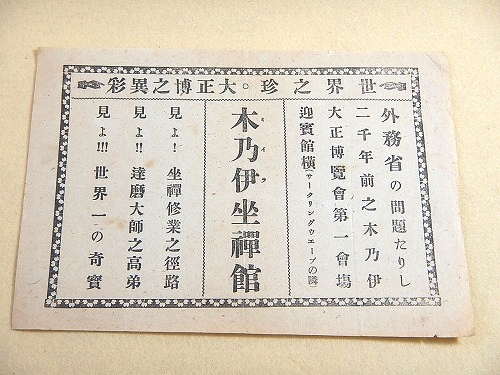 世界之珍。大正博之異彩
外務省の問題たりし
二千年前之木乃伊
大正博覽會第一會塲
迎賓館横(サークリングウエーブの隣
ミイラ
木乃伊坐禪館
見よ! 坐禪修業之徑路
見よ!! 達磨大師之高弟
見よ!!! 世界一の奇寳